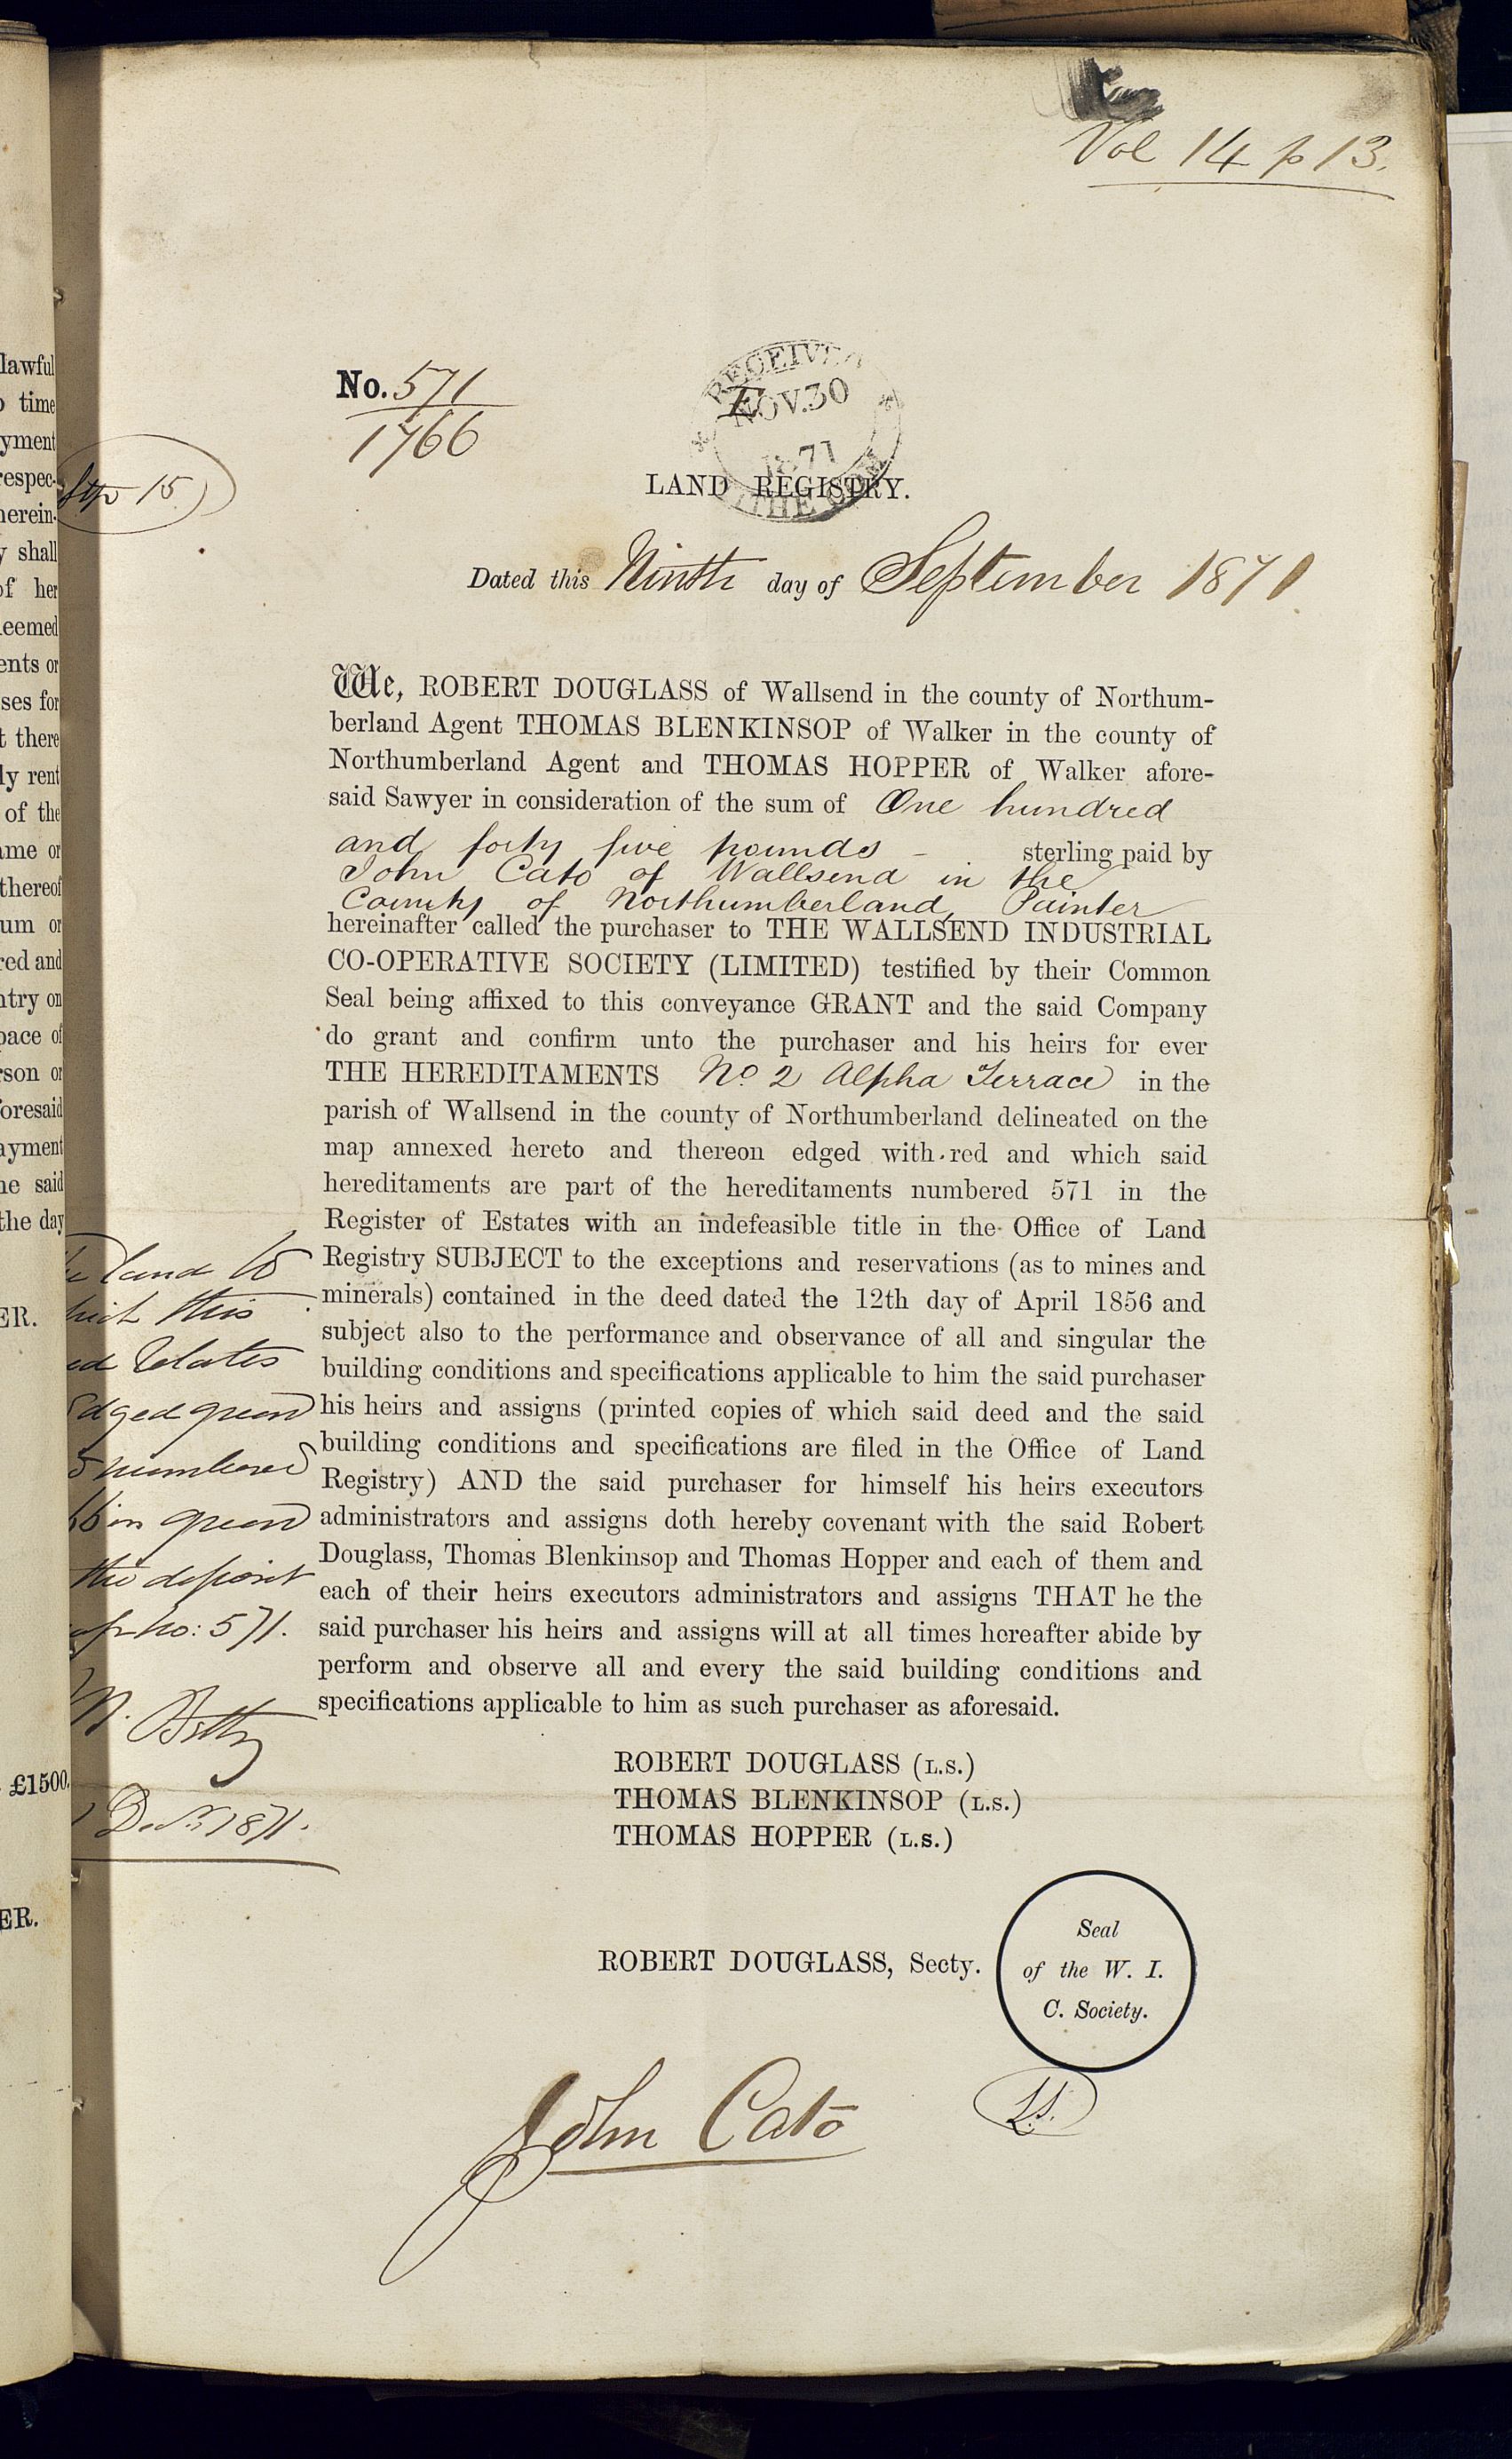 Vol 14 p 13.
No. 571
1766
RECEIVED
NOV. 30
1871
LAND REGISTRY.
Stp 15
Dated this Ninth day of September 1871.
We, ROBERT DOUGLASS of Wallsend in the county of Northum-
berland Agent THOMAS BLENKINSOP of Walker in the county of
Northumberland Agent and THOMAS HOPPER of Walker afore-
said Sawyer in consideration of the sum of One hundred
and forty five pounds – sterling paid by
John Cato of Wallsend in the
County of Northumberland, Painter
hereinafter called the purchaser to THE WALLSEND INDUSTRIAL
CO-OPERATIVE SOCIETY (LIMITED) testified by their Common
Seal being affixed to this conveyance GRANT and the said Company
do grant and confirm unto the purchaser and his heirs for ever
THE HEREDITAMENTS No 2 Alpha Terrace in the
parish of Wallsend in the county of Northumberland delineated on the
map annexed hereto and thereon edged with red and which said
hereditaments are part of the hereditaments numbered 571 in the
Register of Estates with an indefeasible title in the Office of Land
Registry SUBJECT to the exceptions and reservations (as to mines and
minerals) contained in the deed dated the 12th day of April 1856 and
subject also to the performance and observance of all and singular the
building conditions and specifications applicable to him the said purchaser
his heirs and assigns (printed copies of which said deed and the said
building conditions and specifications are filed in the Office of Land
Registry) AND the said purchaser for himself his heirs executors
administrators and assigns doth hereby covenant with the said Robert
Douglass, Thomas Blenkinsop and Thomas Hopper and each of them and
each of their heirs executors administrators and assigns THAT he the
said purchaser his heirs and assigns will at all times hereafter abide by
perform and observe all and every the said building conditions and
specifications applicable to him as such purchaser as aforesaid.
land to
this
relates
Edged green
numbered
in green
the deposit
No: 571.
Decr. 1871.
ROBERT DOUGLASS (L.S.)
THOMAS BLENKINSOP (L.S.)
THOMAS HOPPER (L.S.)
ROBERT DOUGLASS, Secty.
Seal
of the W. I.
C. Society.
John Cato
L.S.
lawful
time
yment
respec-
herein-
shall
of her
eemed
ents or
ses for
there
ly rent
of the
ame or
thereof
um or
red and
ntry on
pace of
rson or
foresaid
ayment
he said
the day
ER.
£1500.
ER.